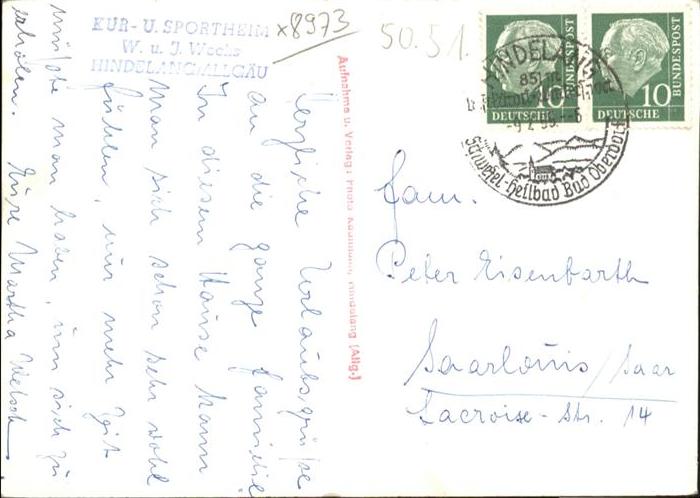 KUR- U. SPORTHEIM
W. u. J. Wechs
HINDELANG/ALLGÄU
x8973
50.51.
Herzliche Urlaubsgrüße
an die ganze Familie
In diesem Hause kann
man sich schon sehr wohl
fühlen, nur mehr Zeit
müßte man haben, um sich zu
erholen. Eure Martha Welsch
Aufnahme u. Verlag: Photo Kaufmann, Hindelang (Allg.)
10 DEUTSCHE BUNDESPOST
10 DEUTSCHE BUNDESPOST
HINDELANG
851 m
Schwefel-Heilbad Bad Oberdorf
Fam.
Peter Eisenbarth
Saarlouis / Saar
Lacroise-Str. 14